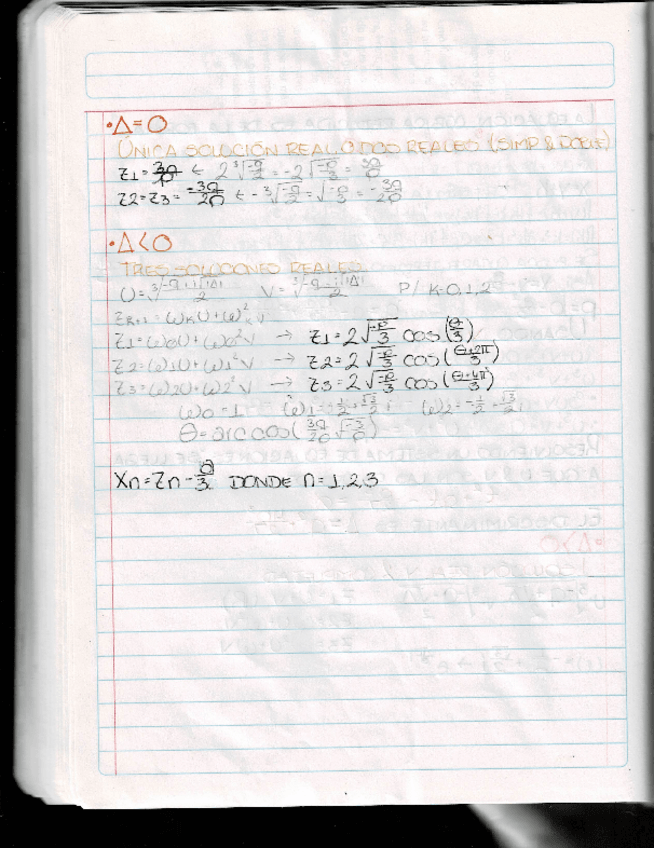 ·Δ=0
ÚNICA SOLUCIÓN REAL O DOS REALES (SIMP & DOBLE)
Z1=3q/p ← 2∛(-q/2)=-2√(-p/3)=3q/p
Z2=Z3=-3q/2p ← -∛(-q/2)=√(-p/3)=-3q/2p
·Δ<0
TRES SOLUCIONES REALES
U=∛((-q+i√|Δ|)/2) V=∛((-q-i√|Δ|)/2) P/ K=0,1,2
Z1=ω0U+ω0²V → Z1=2√(-p/3) cos(θ/3)
Z2=ω1U+ω1²V → Z2=2√(-p/3) cos((θ+2π)/3)
Z3=ω2U+ω2²V → Z3=2√(-p/3) cos((θ+4π)/3)
ω0=1
θ=arc cos(3q/2p √(-3/p))
Xn=Zn-a/3 DONDE n=1,2,3